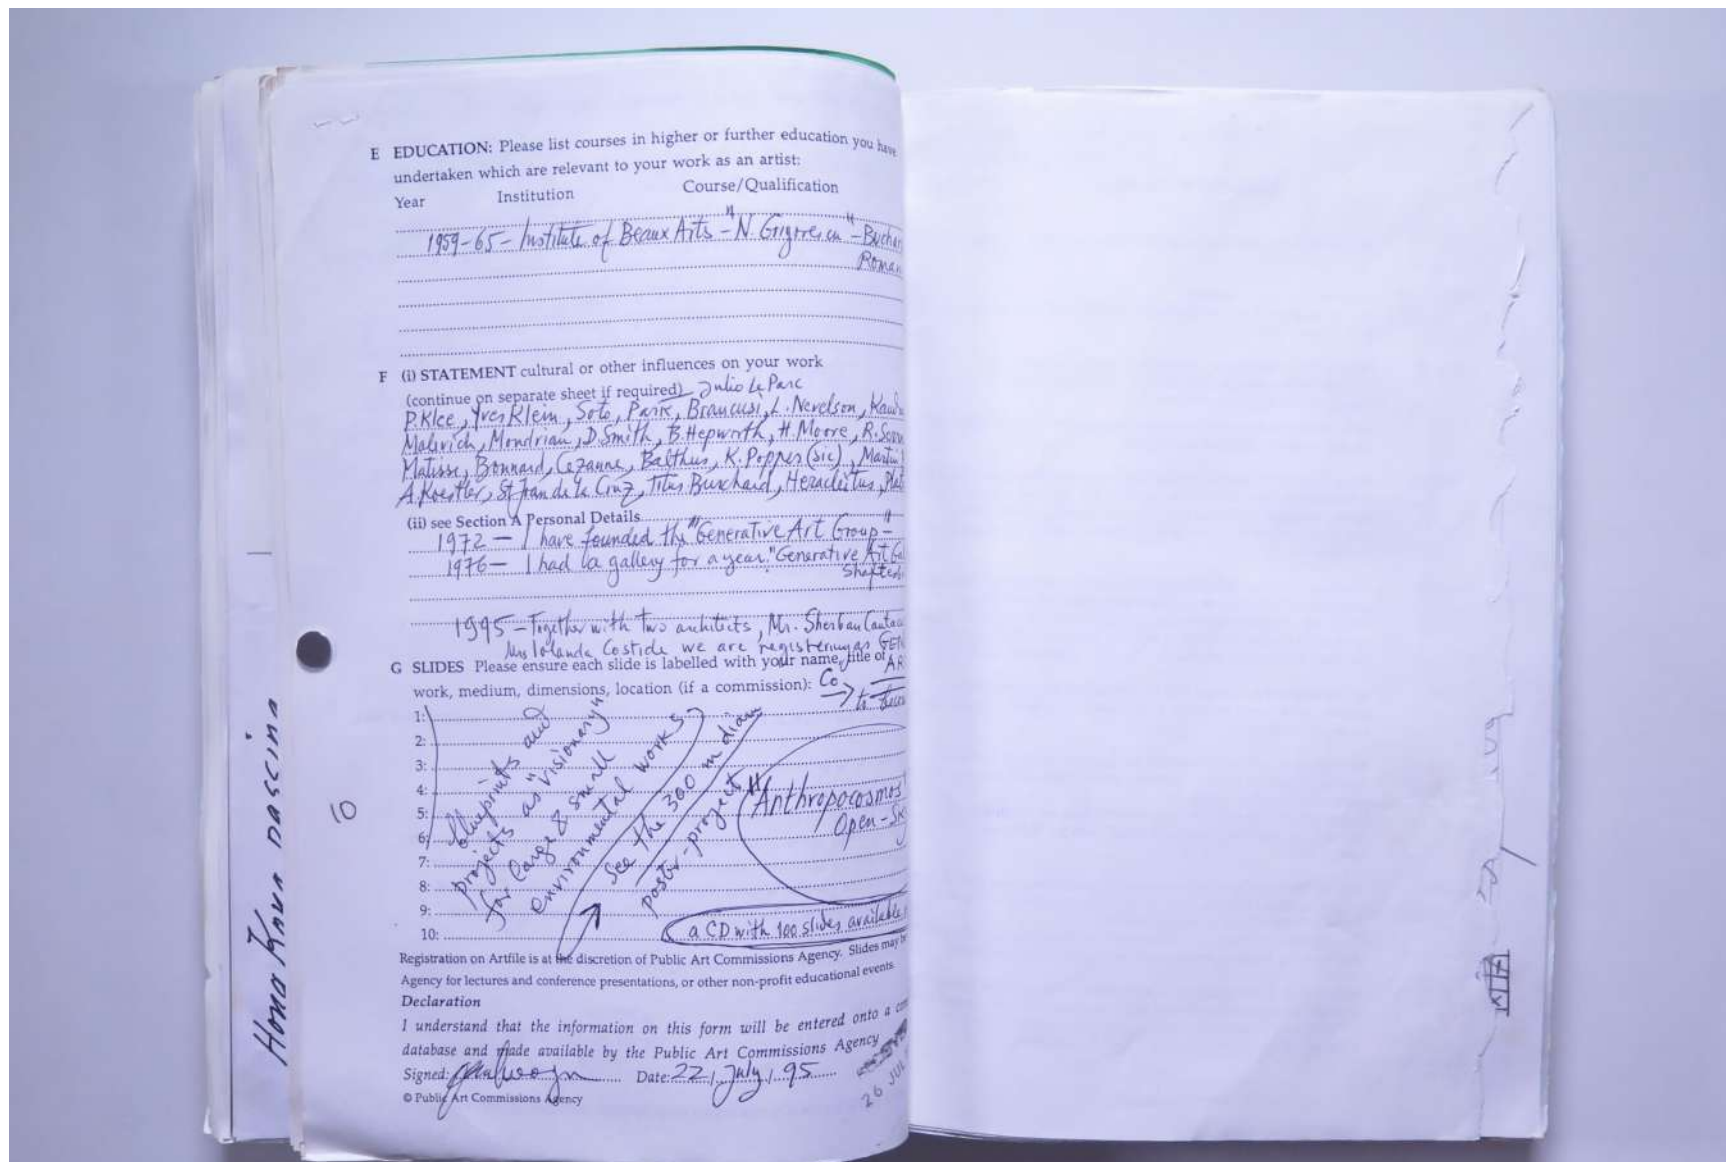 E EDUCATION: Please list courses in higher or further education you have
undertaken which are relevant to your work as an artist:
Year Institution Course/Qualification
1959-65 - Institute of Beaux Arts - "N. Grigorescu" - Buchar
Roman
F (i) STATEMENT cultural or other influences on your work
(continue on separate sheet if required) Julio Le Parc
P.Klee, Yves Klein, Soto, Pasik, Brancusi, L. Nevelson, Kand
Malevich, Mondrian, D. Smith, B. Hepworth, H. Moore, R.
Matisse, Bonnard, Cezanne, Balthus, K. Popper (sic), Martin
A. Koestler, St Juan de la Cruz, Titus Burchard, Heracleitus, Plat
(ii) see Section A Personal Details
1972 — I have founded the "Generative Art Group" -
1976 — I had a gallery for a year. "Generative Art Ga
Shaftesb
1995 - Together with two architects, Mr. Sherban Cantac
Mrs Iolanda Costide we are registering as GEN
G SLIDES Please ensure each slide is labelled with your name, title of AR
work, medium, dimensions, location (if a commission): Co
to
1:
2:
3:
4:
5:
6:
7:
8:
9:
10:
blueprints and
projects as "visionary"
for large & small
environmental works
See the 300 m diam
poster-project
"Anthropocosmos
Open-Sky
a CD with 100 slides available
Registration on Artfile is at the discretion of Public Art Commissions Agency. Slides may be
Agency for lectures and conference presentations, or other non-profit educational events.
Declaration
I understand that the information on this form will be entered onto a com
database and made available by the Public Art Commissions Agency
Signed: Date: 22, July, 95
© Public Art Commissions Agency
26 JUL
10